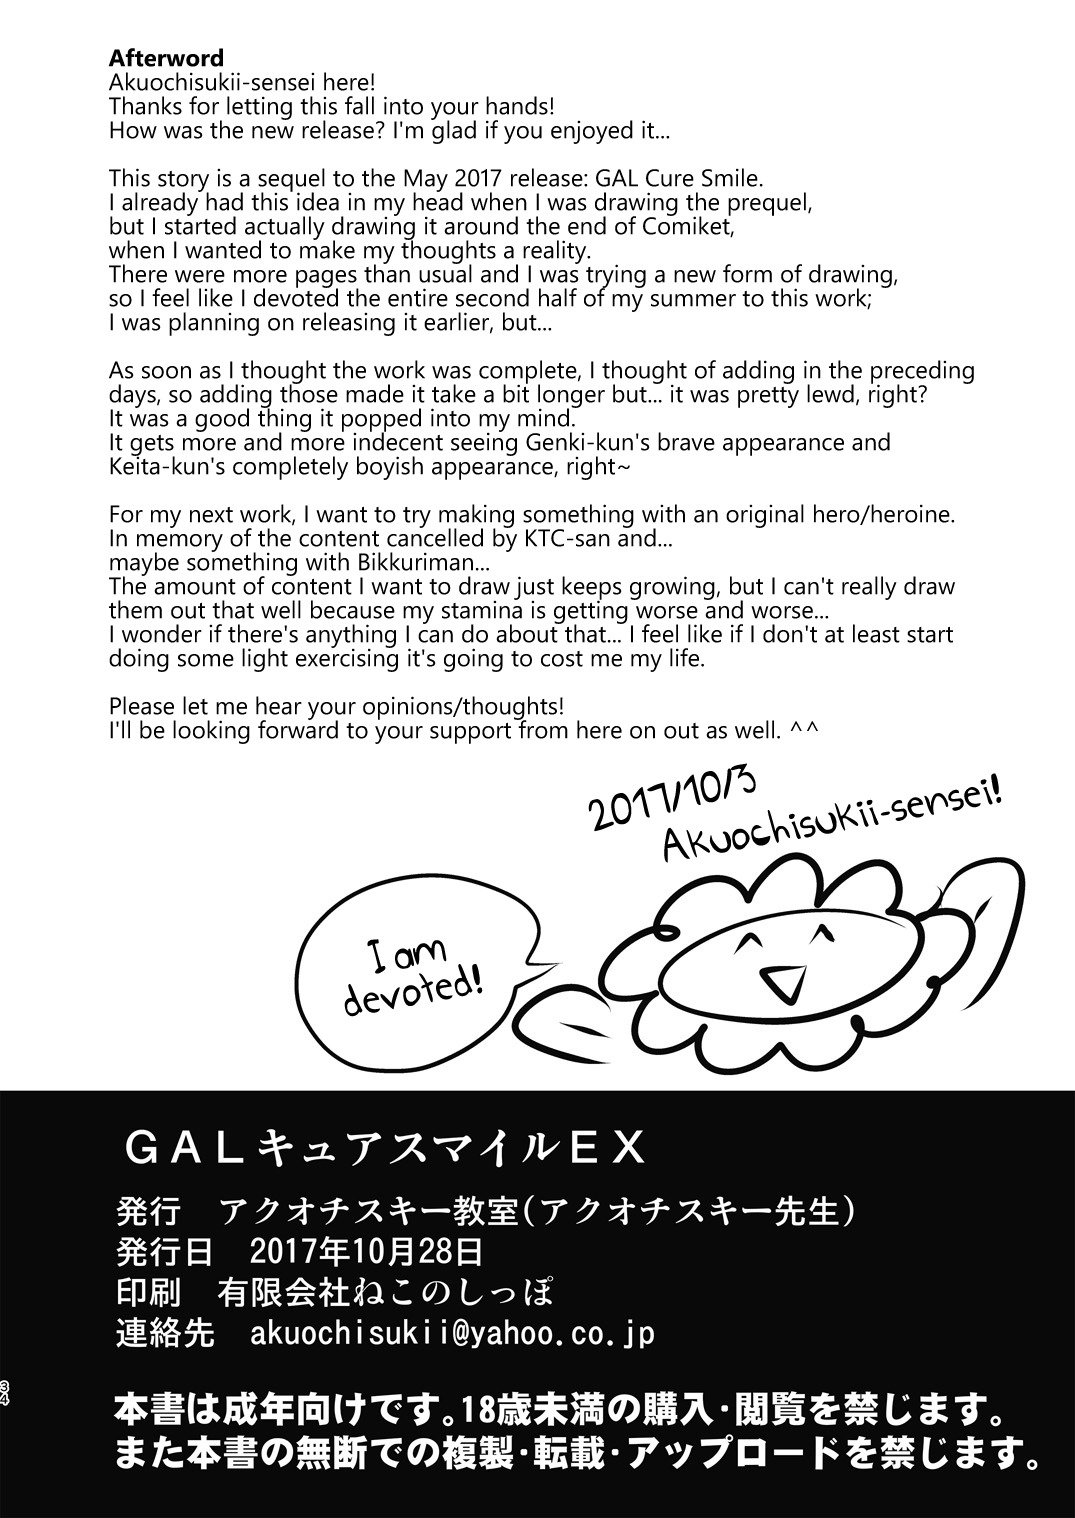 Afterword
Akuochisukii-sensei here!
Thanks for letting this fall into your hands!
How was the new release? I'm glad if you enjoyed it...
This story is a sequel to the May 2017 release: GAL Cure Smile.
I already had this idea in my head when I was drawing the prequel,
but I started actually drawing it around the end of Comiket,
when I wanted to make my thoughts a reality.
There were more pages than usual and I was trying a new form of drawing,
so I feel like I devoted the entire second half of my summer to this work;
I was planning on releasing it earlier, but...
As soon as I thought the work was complete, I thought of adding in the preceding
days, so adding those made it take a bit longer but... it was pretty lewd, right?
It was a good thing it popped into my mind.
It gets more and more indecent seeing Genki-kun's brave appearance and
Keita-kun's completely boyish appearance, right~
For my next work, I want to try making something with an original hero/heroine.
In memory of the content cancelled by KTC-san and...
maybe something with Bikkuriman...
The amount of content I want to draw just keeps growing, but I can't really draw
them out that well because my stamina is getting worse and worse...
I wonder if there's anything I can do about that... I feel like if I don't at least start
doing some light exercising it's going to cost me my life.
Please let me hear your opinions/thoughts!
I'll be looking forward to your support from here on out as well. ^^
2017/10/3
Akuochisukii-sensei!
I am
devoted!
ＧＡＬキュアスマイルＥＸ
発行　アクオチスキー教室(アクオチスキー先生)
発行日　2017年10月28日
印刷　有限会社ねこのしっぽ
連絡先　akuochisukii@yahoo.co.jp
本書は成年向けです。18歳未満の購入・閲覧を禁じます。
また本書の無断での複製・転載・アップロードを禁じます。
34